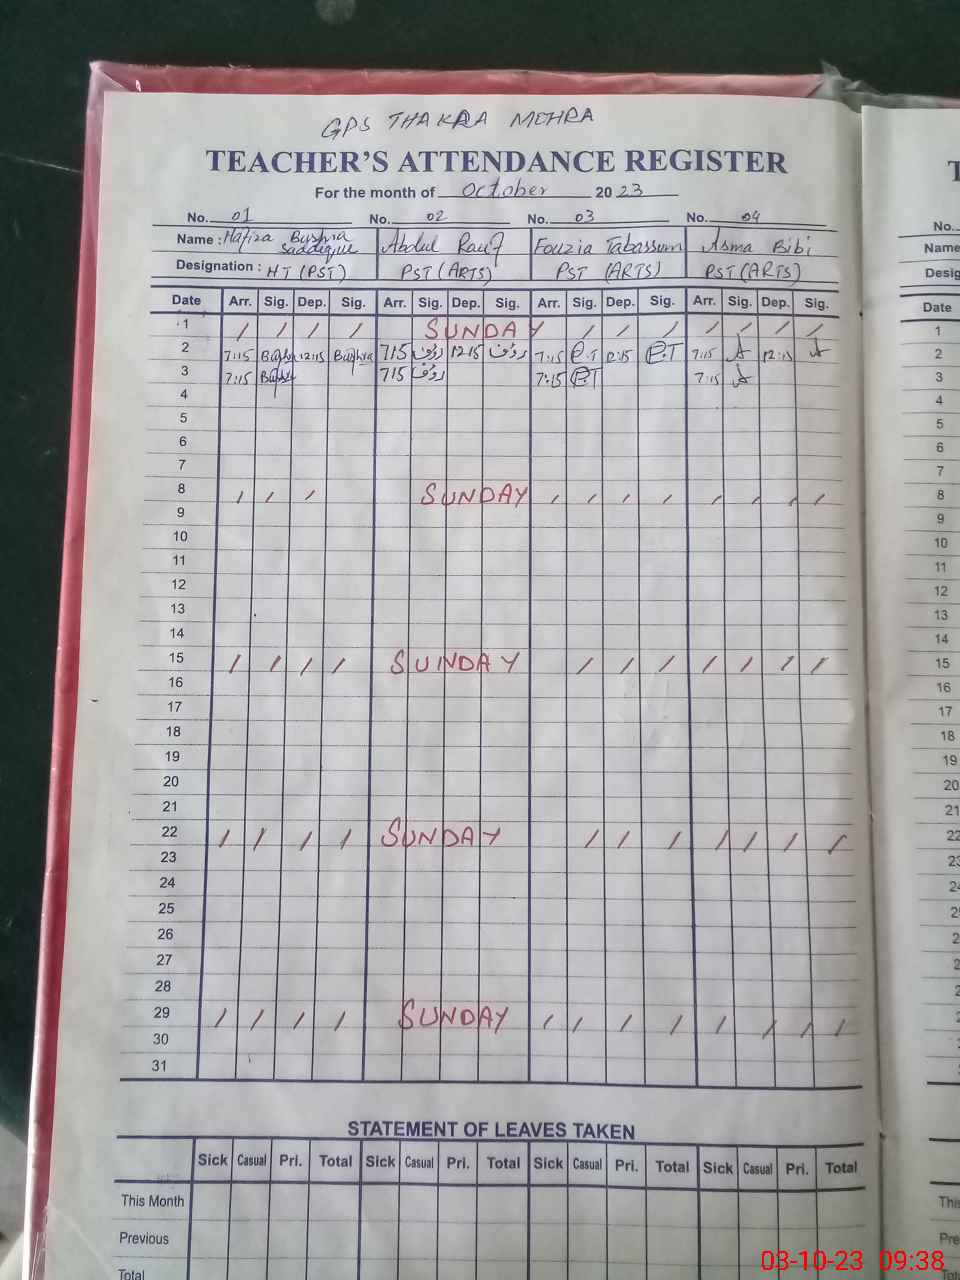 GPS THAKRA MEHRA
TEACHER'S ATTENDANCE REGISTER
For the month of October 2023
No. 01 No. 02 No. 03 No. 04
Name : Hafiza Bushra Saddique Abdul Rauf Fouzia Tabassum Asma Bibi
Designation : HT (PST) PST (ARTS) PST (ARTS) PST (ARTS)
Date Arr. Sig. Dep. Sig. Arr. Sig. Dep. Sig. Arr. Sig. Dep. Sig. Arr. Sig. Dep. Sig.
1 / / / / SUNDAY / / / / / / /
2 7:15 Bushra 12:15 Bushra 7:15 رؤف 12:15 رؤف 7:15 P.T 12:15 P.T 7:15 A 12:15 A
3 7:15 Bushra 7:15 رؤف 7:15 P.T 7:15 A
4
5
6
7
8 / / / SUNDAY / / / / / / / /
9
10
11
12
13
14
15 / / / / SUNDAY / / / / / / /
16
17
18
19
20
21
22 / / / / SUNDAY / / / / / / /
23
24
25
26
27
28
29 / / / / SUNDAY / / / / / / / /
30
31
STATEMENT OF LEAVES TAKEN
Sick Casual Pri. Total Sick Casual Pri. Total Sick Casual Pri. Total Sick Casual Pri. Total
This Month
Previous
Total
No.
Name
Desig
Date
1
2
3
4
5
6
7
8
9
10
11
12
13
14
15
16
17
18
19
20
21
22
03-10-23 09:38